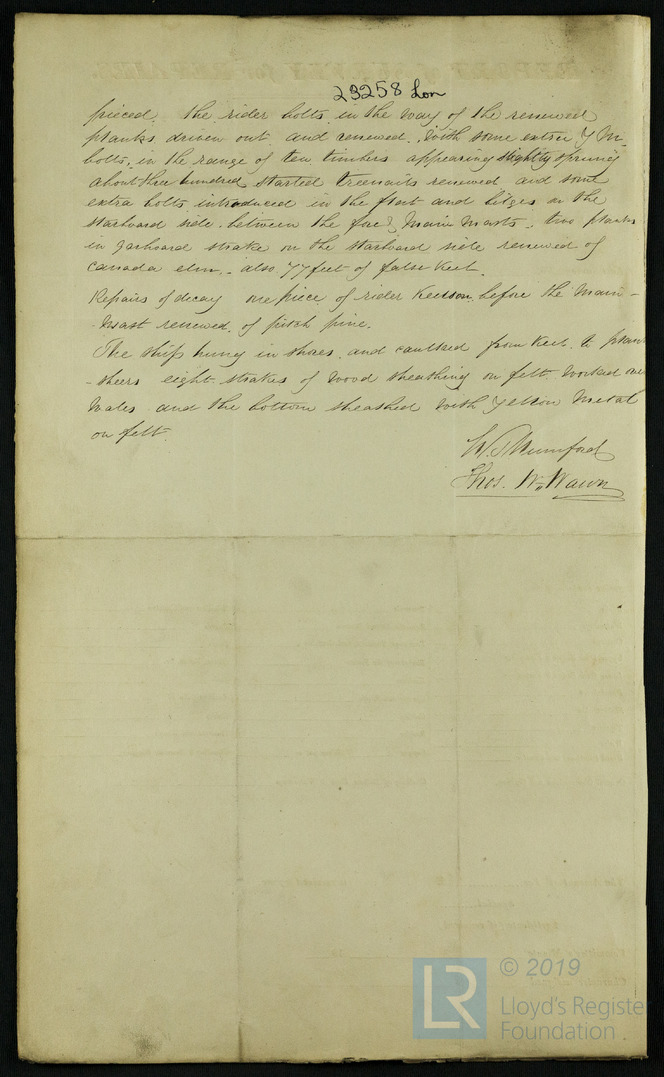 23258 Lon
pieced. the rider bolts in the way of the renewed
planks driven out and renewed. With some extra Y M
bolts, in the range of ten timbers appearing slightly sprung
about three hundred started treenails renewed and some
extra bolts introduced in the flat and bilges on the
starboard side. between the fore & Main Masts. two planks
in garboard strake on the starboard side renewed of
Canada elm. also 77 feet of false keel.
Repairs of decay one piece of rider keelson before the Main-
-Mast renewed, of pitch pine.
The Ship hung in shores, and caulked from keel to plank
-sheers eight strakes of wood sheathing on felt worked over
Wales and the bottom sheathed with Yellow Metal
on felt.
W. S. Mumford
Thos. W. Wawn
LR
© 2019
Lloyd's Register
Foundation